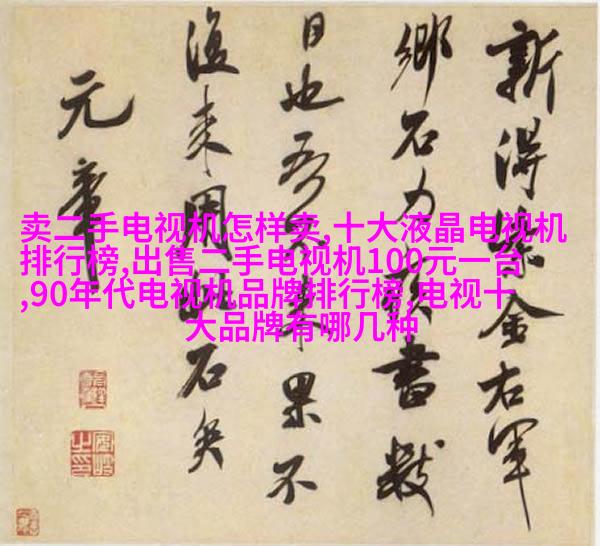 卖二手电视机怎样卖,十大液晶电视机
排行榜,出售二手电视机100元一台
,90年代电视机品牌排行榜,电视十
大品牌有哪几种
新得紫金右軍
鄉石力疾書數
日也吾不來果不
復来用石矣
元章